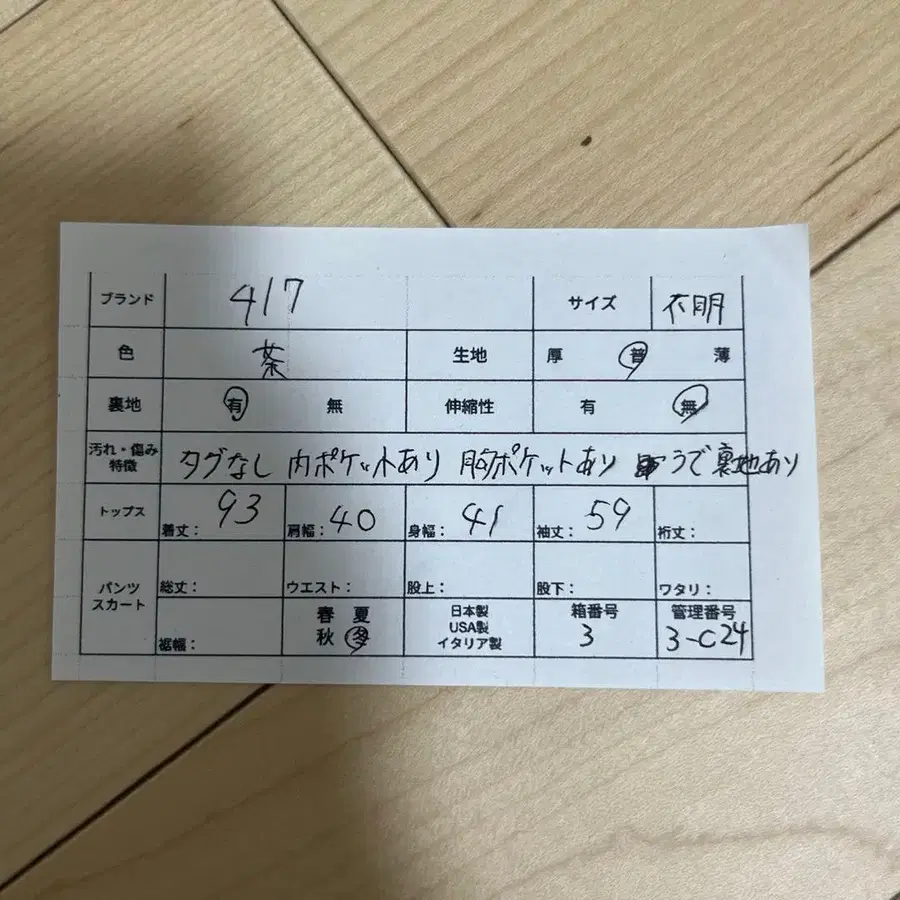 ブランド 417 サイズ 不明
色 茶 生地 厚 普 薄
裏地 有 無 伸縮性 有 無
汚れ・傷み 特徴 タグなし 内ポケットあり 胸ポケットあり うで裏地あり
トップス 着丈： 93 肩幅： 40 身幅： 41 袖丈： 59 裄丈：
パンツ スカート 総丈： ウエスト： 股上： 股下： ワタリ：
裾幅： 春 夏 秋 冬 日本製 USA製 イタリア製 箱番号 3 管理番号 3-C24